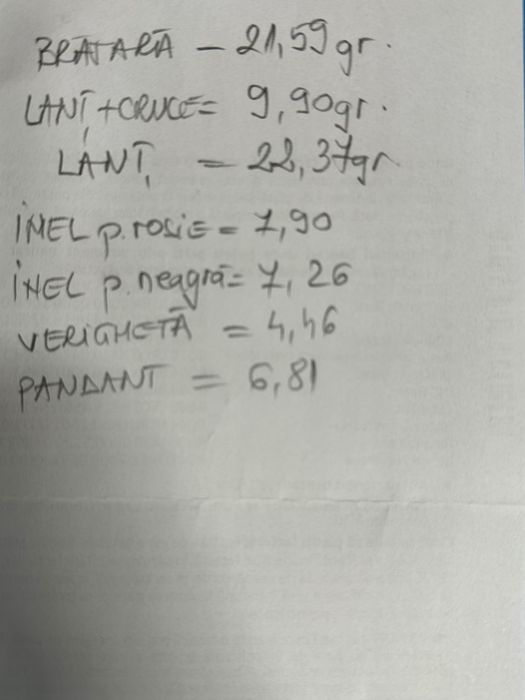 BRĂȚARĂ – 21,59 gr.
LANȚ + CRUCE = 9,90gr.
LANȚ = 22,37gr
INEL p. rosiE = 7,90
INEL p. neagră = 7,26
VERIGHETĂ = 4,46
PANDANT = 6,81